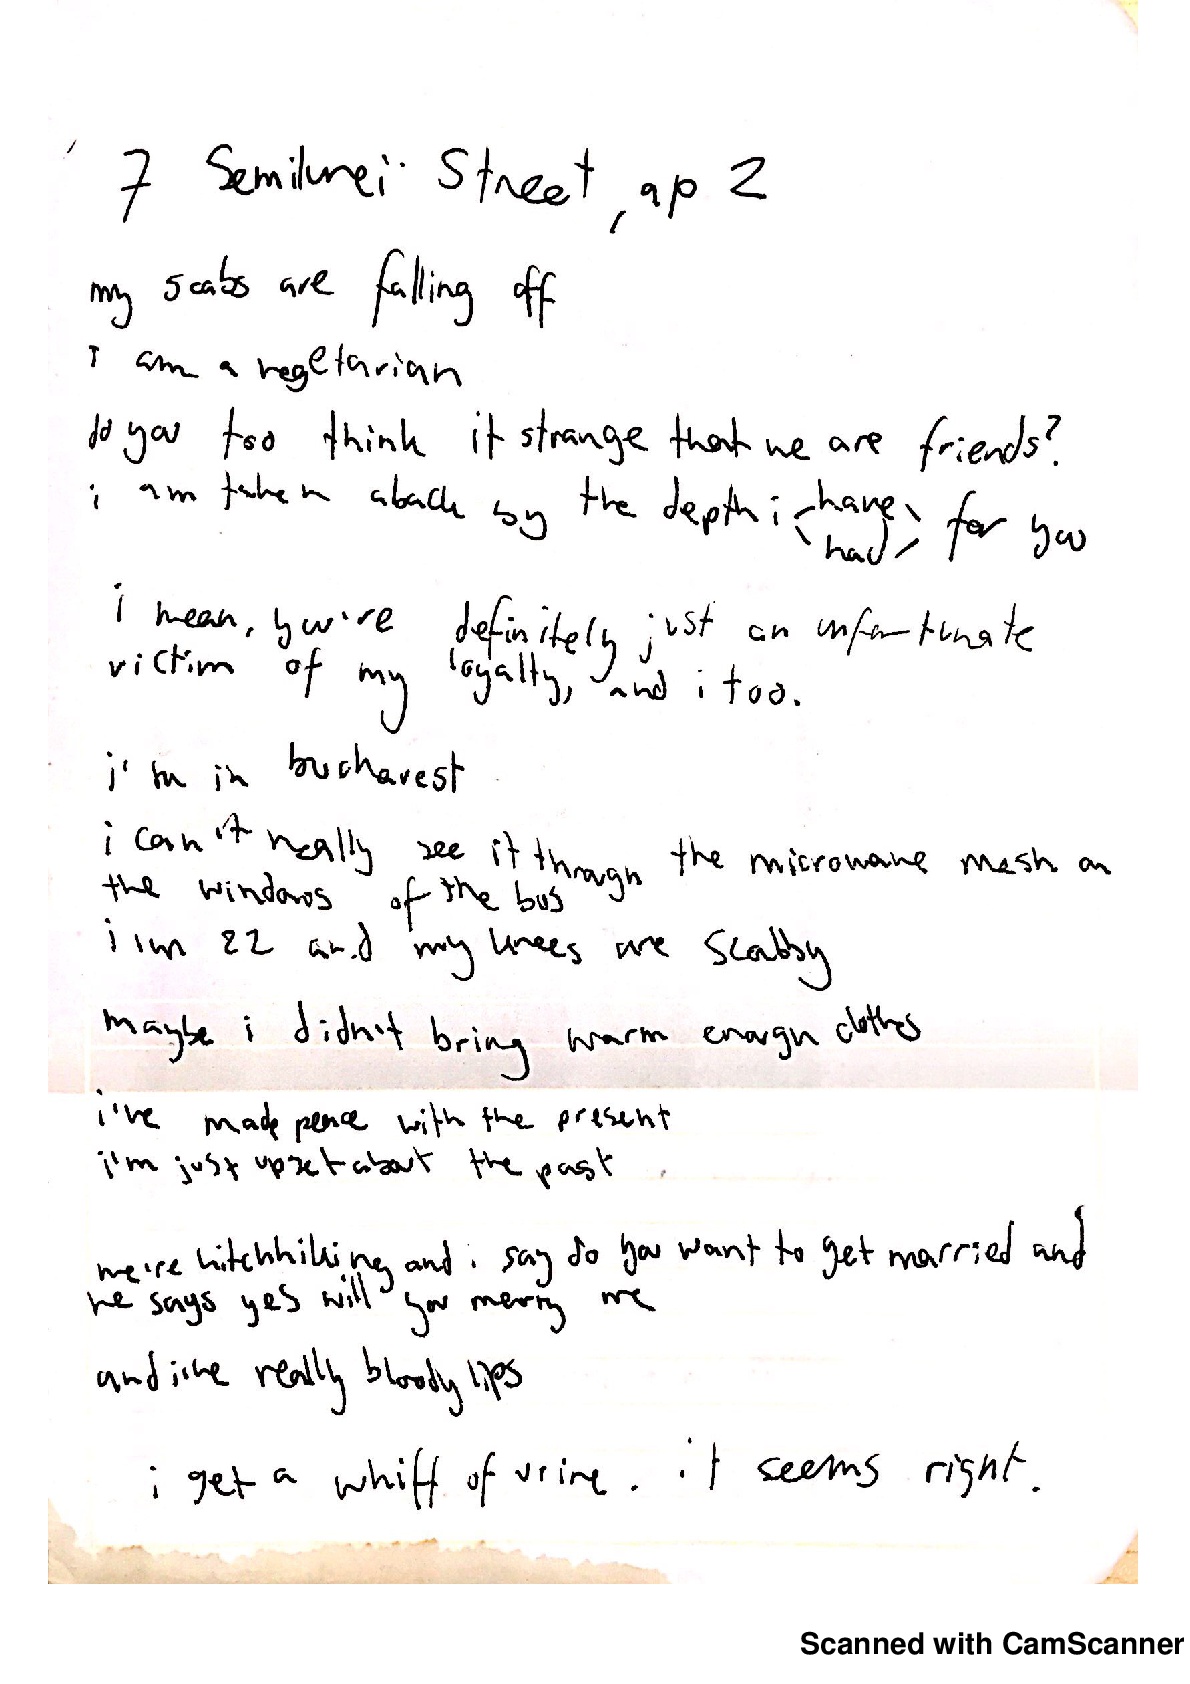 7 Semilunei Street, ap 2
my scabs are falling off
i am a vegetarian
do you too think it strange that we are friends?
i am taken aback by the depth i have for you
had
i mean, you're definitely just an unfortunate
victim of my loyalty, and i too.
i'm in bucharest
i can't really see it through the microwave mesh on
the windows of the bus
i am 22 and my knees are scabby
maybe i didn't bring warm enough clothes
i've made peace with the present
i'm just upset about the past
we're hitchhiking and i say do you want to get married and
he says yes will you merry me
and i've really bloody lips
i get a whiff of urine. it seems right.
Scanned with CamScanner